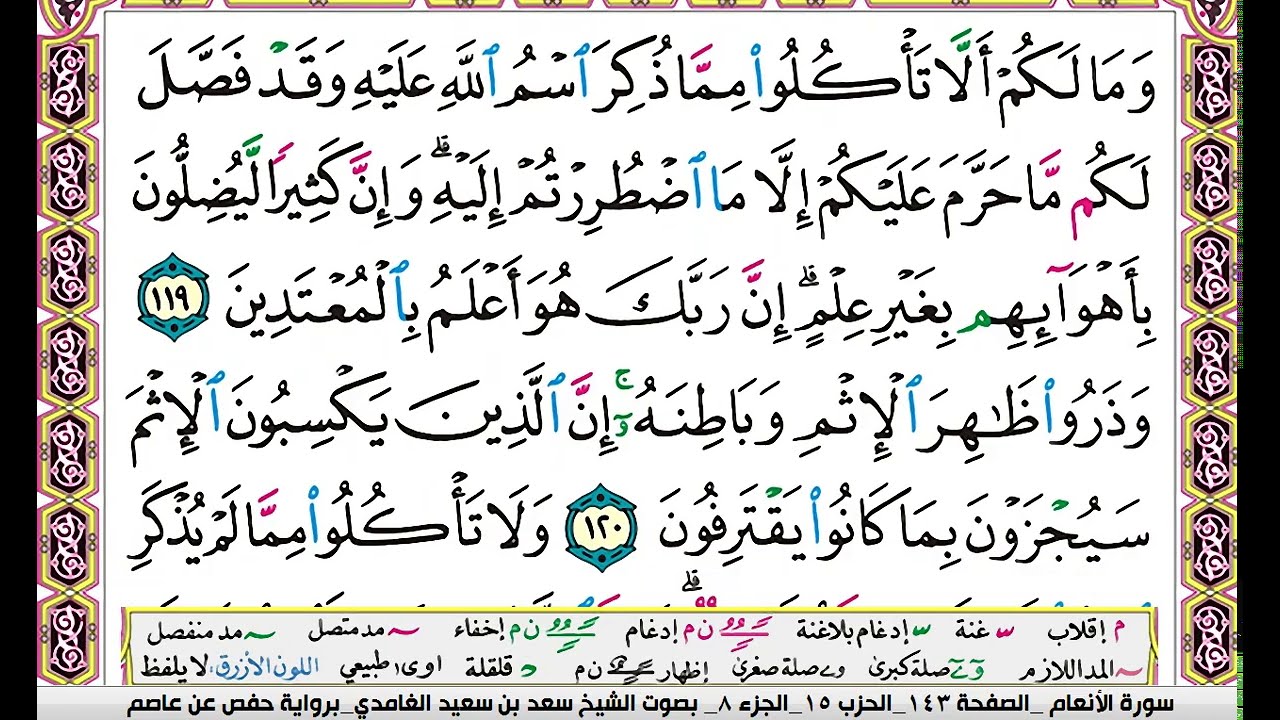 وَمَا لَكُمْ أَلَّا تَأْكُلُوا۟ مِمَّا ذُكِرَ ٱسْمُ ٱللَّهِ عَلَيْهِ وَقَدْ فَصَّلَ
لَكُم مَّا حَرَّمَ عَلَيْكُمْ إِلَّا مَا ٱضْطُرِرْتُمْ إِلَيْهِ ۗ وَإِنَّ كَثِيرًا لَّيُضِلُّونَ
بِأَهْوَآئِهِم بِغَيْرِ عِلْمٍ ۗ إِنَّ رَبَّكَ هُوَ أَعْلَمُ بِٱلْمُعْتَدِينَ ١١٩
وَذَرُوا۟ ظَـٰهِرَ ٱلْإِثْمِ وَبَاطِنَهُۥٓ ۚ إِنَّ ٱلَّذِينَ يَكْسِبُونَ ٱلْإِثْمَ
سَيُجْزَوْنَ بِمَا كَانُوا۟ يَقْتَرِفُونَ ١٢٠ وَلَا تَأْكُلُوا۟ مِمَّا لَمْ يُذْكَرِ
م إقلاب غنة إدغام بلاغنة ن م إدغام ن م إخفاء مد متصل مد منفصل
المد اللازم صلة كبرى صلة صغرى إظهار ن م قلقلة اوى طبيعي اللون الأزرق: لا يلفظ
سورة الأنعام _الصفحة ١٤٣_الحزب ١٥_الجزء ٨_ بصوت الشيخ سعد بن سعيد الغامدي_برواية حفص عن عاصم